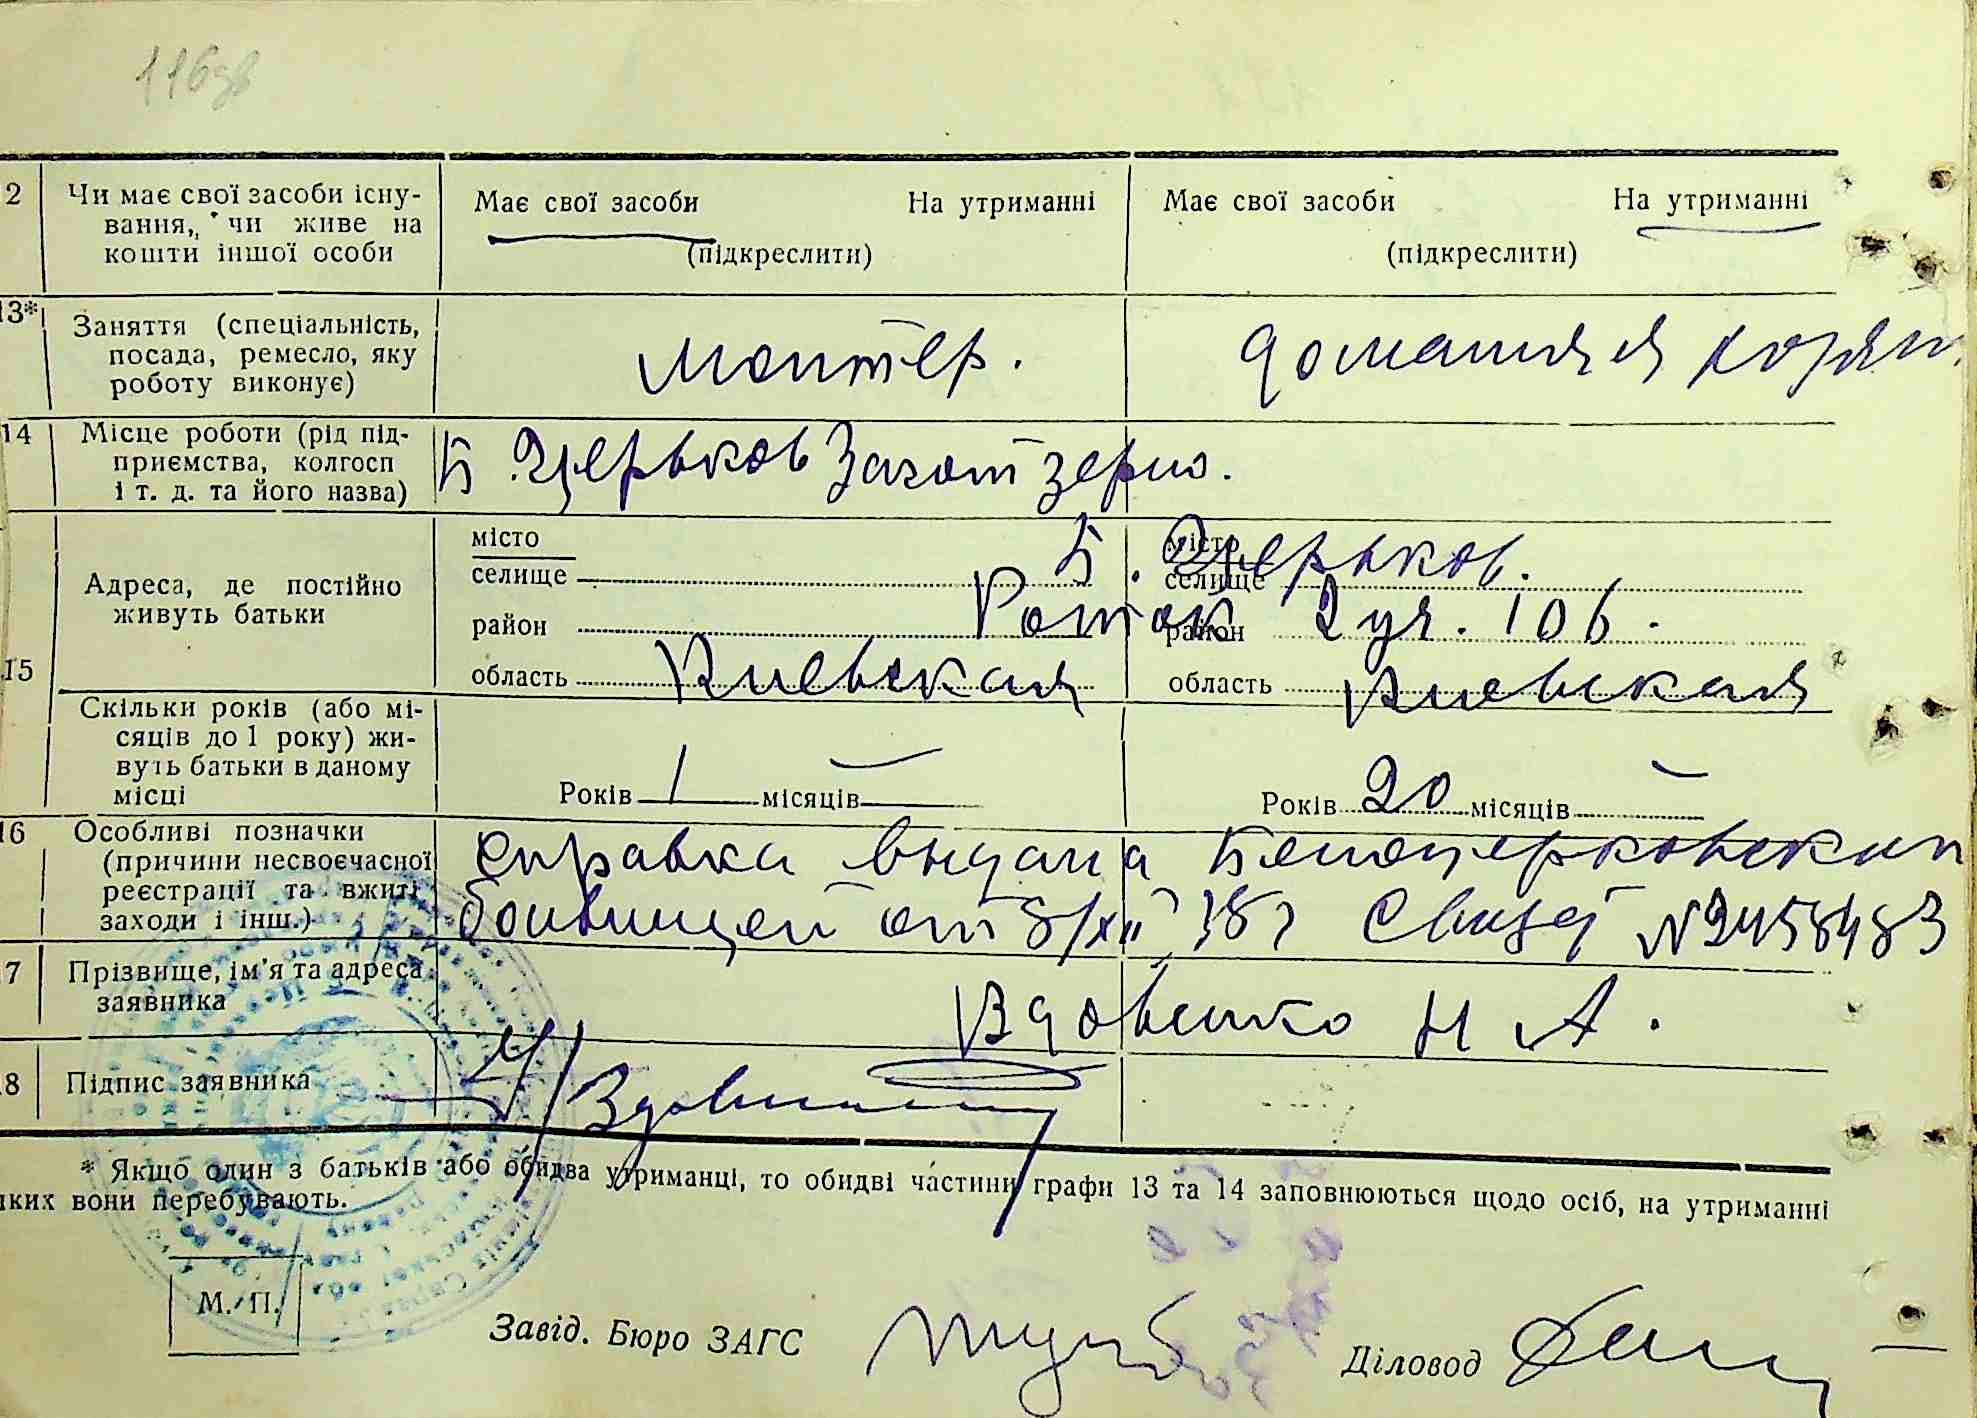 116зв
2 Чи має свої засоби існу- Має свої засоби На утриманні Має свої засоби На утриманні
вання, чи живе на
кошти іншої особи (підкреслити) (підкреслити)
13* Заняття (спеціальність,
посада, ремесло, яку монтер. домашняя хозяй
роботу виконує)
14 Місце роботи (рід під-
приємства, колгосп Б. Церьков Заготзерно.
і т. д. та його назва)
місто місто
селище Б. Церьков. селище
Адреса, де постійно
живуть батьки район Роток 2 уч. 106. район
15 область Киевская область Киевская
Скільки років (або мі-
сяців до 1 року) жи-
вуть батьки в даному
місці Років 1 місяців — Років 20 місяців —
16 Особливі позначки
(причини несвоєчасної справка выдана Белоцерковский
реєстрації та вжиті
заходи і інш.) больницей от 8/XII Свидет №
7 Прізвище, ім'я та адреса
заявника Вдовенко Н А.
8 Підпис заявника
* Якщо один з батьків або обидва утриманці, то обидві частини графи 13 та 14 заповнюються щодо осіб, на утриманні
яких вони перебувають.
М. П.
Завід. Бюро ЗАГС Діловод